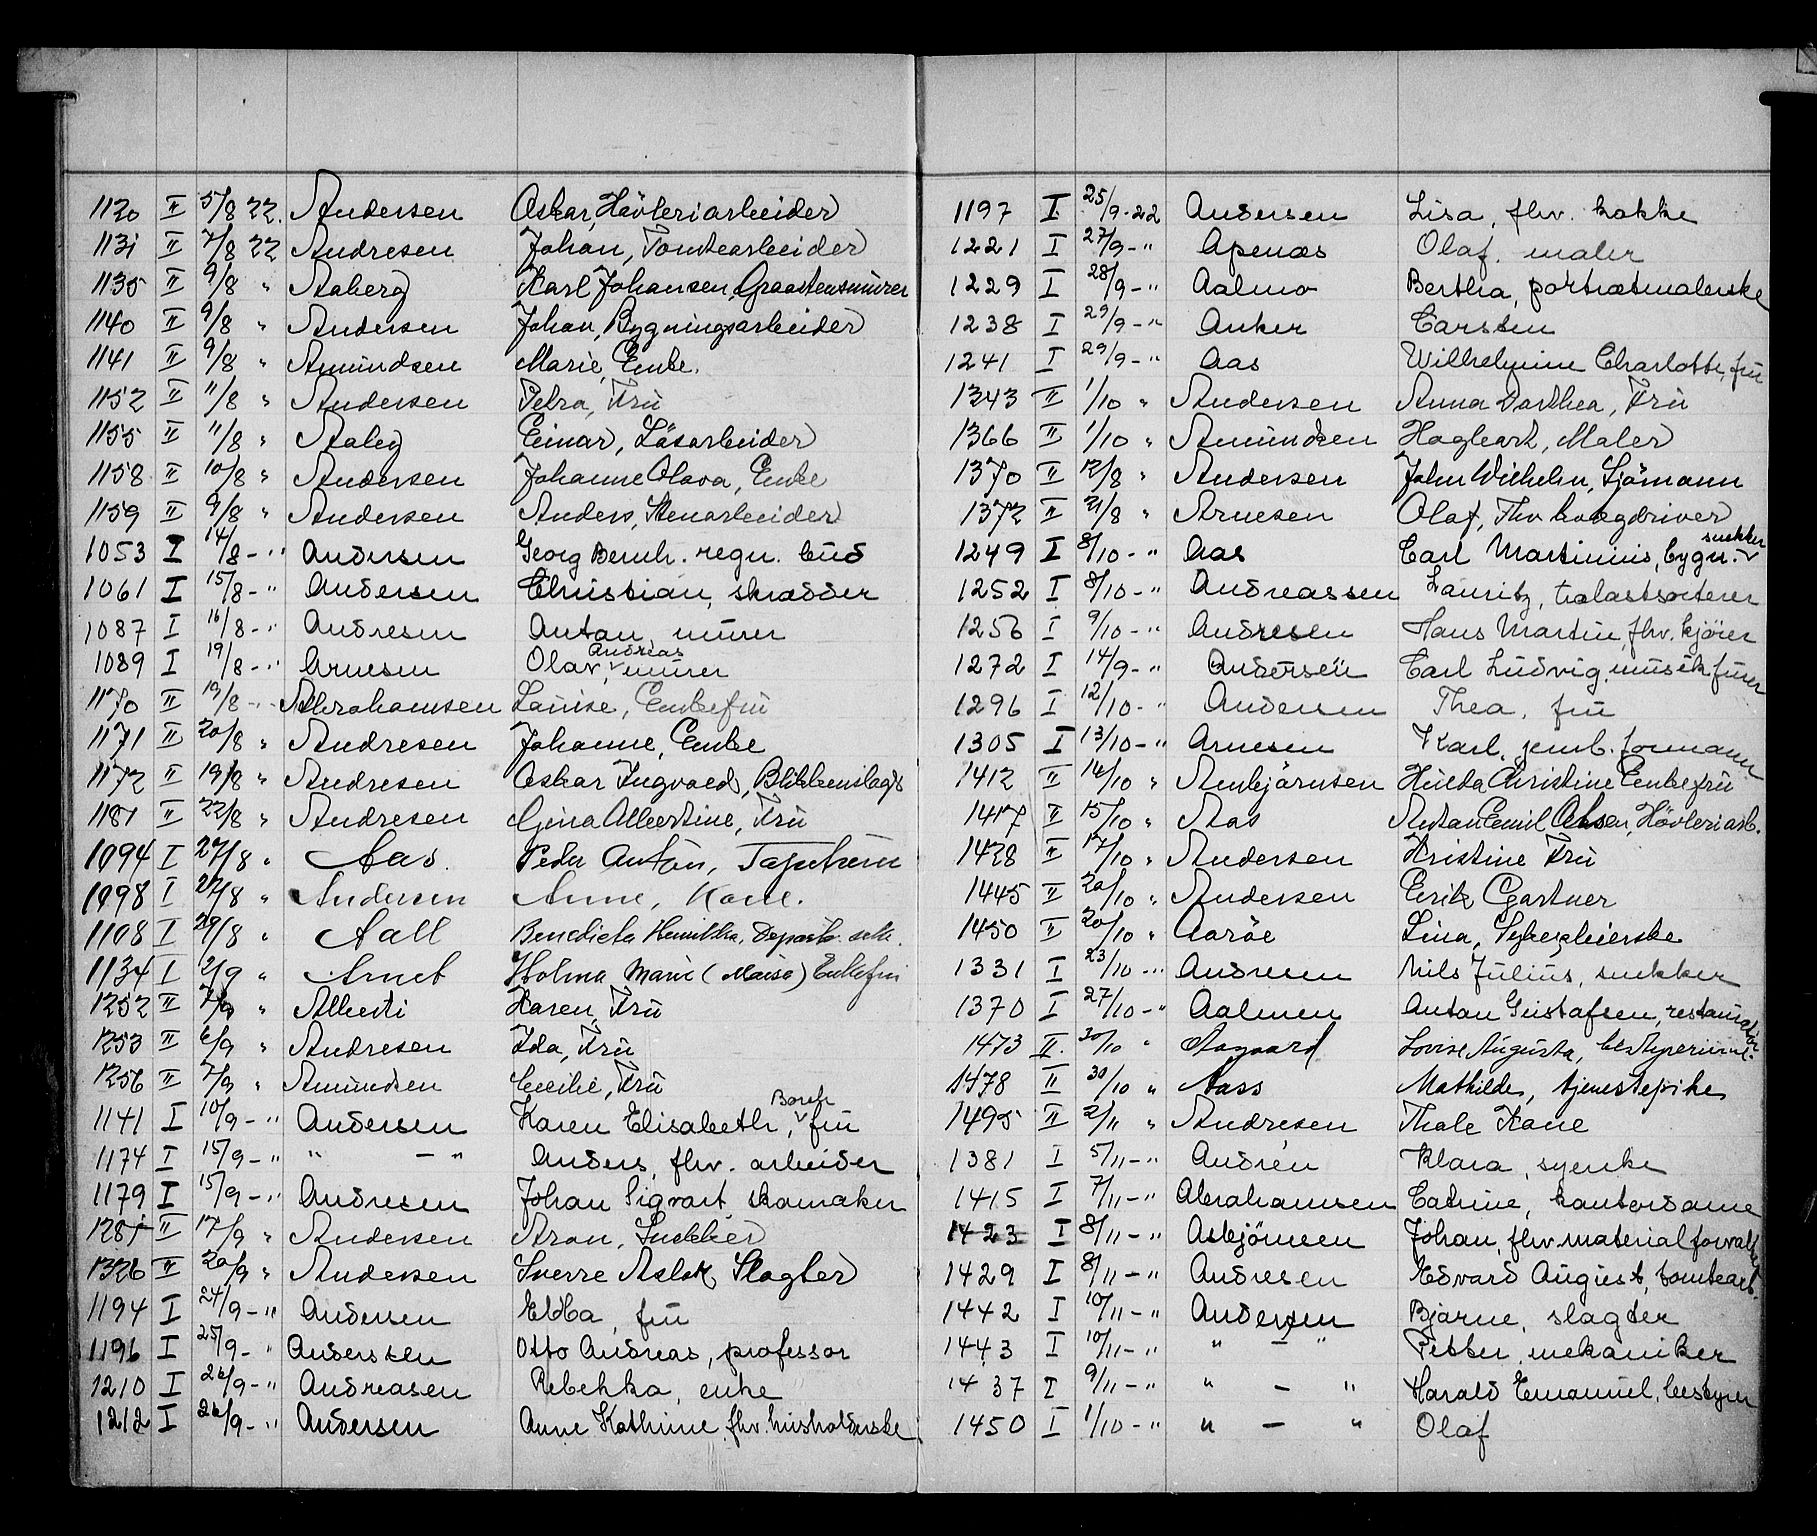 1120 II 5/8 22. Andersen Oskar, Høvleriarbeider
1131 II 7/8 22 Andresen Johan, Tomtearbeider
1135 II 9/8 " Aaberg Karl Johansen, Graastensmurer
1140 II 9/8 " Andersen Johan, Bygningsarbeider
1141 II 9/8 " Amundsen Marie, Enke.
1152 II 11/8 " Andersen Petra, Fru
1155 II 11/8 " Aaby Einar, Løsarbeider
1158 II 10/8 " Andersen Johanne Olava, Enke
1159 II 9/8 " Andersen Anders, Stenarbeider
1053 I 14/8 - " Andersen Georg Bernh. regn. bud
1061 I 15/8 - " Andersen Christian, skrædder
1087 I 16/8 - " Andresen Anton, murer
1089 I 19/8 - " Arnesen Olav, Andreas murer
1170 II 19/8 - " Abrahamsen Louise, Enkefru
1171 II 20/8 " Andresen Johanne, Enke
1172 II 19/8 " Andresen Oskar Ingvald, Blikkenslag.
1181 II 22/8 " Andresen Gina Albertine, Fru
1094 I 27/8 " Aas. Peder Anton, Tapetserer
1098 I 27/8 " Andersen Anne, Kone.
1108 I 29/8 " Aall Benedicte Henrikka, Departb. sek.
1134 I 2/9 " Arneb Holma Marie (Maisa) Enkefru
1252 II 7/9 " Alberti Karen, Fru
1253 II 6/9 " Andresen Ida, Fru
1256 II 7/9 " Amundsen Cecilie, Fru
1141 I 10/9 - " Andersen Karen Elisabeth, Borch fru
1174 I 15/9 - " " - " Anders, fhv. arbeider
1179 I 15/9 - " Andresen Johan Sigvart, skomaker
1287 II 17/9 " Andersen Aron, Snekker
1326 II 20/9 " Andersen Sverre Aslak, Slagter
1194 I 24/9 - " Andersen Ebba, fru
1196 I 25/9 - " Anderssen Otto Andreas, professor
1210 I 26/9 - " Andreasen Rebekka, enke
1212 I 26/9 - " Andersen Anne Kathrine, fhv. husholderske
1197 I 25/9 - 22 Andersen Lisa, fhv. kokke
1221 I 27/9 - " Apenæs Olaf, maler
1229 I 28/9 - " Aalmo Bertha, portrætmalerske
1238 I 29/9 - " Anker Carsten
1241 I 29/9 - " Aas Wilhelmine Charlotte, fru
1343 II 1/10 " Andersen Anna Dorthea, Fru
1366 II 1/10 " Amundsen Hagbart, Maler
1370 II 12/8 " Andersen John Wilhelm, Sjømann
1372 II 21/8 " Arnesen Olaf, Fhv
1249 I 8/10 - " Aas Carl Martinius, bygn. snekker
1252 I 8/10 - " Andreassen Lauritz, trælastsorterer
1256 I 9/10 - " Andresen Hans Martin, fhv. kjører
1272 I 14/9 - " Andersen Carl Ludvig, musikfurer
1296 I 12/10 - " Andersen Thea, fru
1305 I 13/10 - " Arnesen Karl, jernb. formann
1412 II 14/10 " Arnbjørnsen Hulda Christine Enkefru
1417 II 15/10 " Aas Anton Emil Olsen, Høvleriarb.
1428 II 17/10 " Andersen Kristine Fru
1445 II 20/10 " Andersen Erik Gartner
1450 II 20/10 " Aarøe Lina, Sykepleierske
1331 I 23/10 - " Andresen Nils Julius, snekker
1370 I 27/10 - " Aalmen Anton Gustafsen, restauratør
1473 II. 30/10 " Aagaard Lovise Augusta, bestyrerinne.
1478 II 30/10 " Aass Mathilde, tjenestepike
1495 II 2/11 " Andresen Thale Kone
1381 I 5/11 - " Andrén Klara, syerske
1415 I 7/11 - " Abrahamsen Catrine, kontordame
1423 I 8/11 - " Asbjørnsen Johan, fhv. materialforvalter
1429 I 8/11 - " Andresen Edvard August, tomtearb.
1442 I 10/11 - " Andersen Bjarne, slagter
1443 I 10/11 - " " - " Petter, mekaniker
1437 I 9/11 - " " - " Harald Emanuel, bestyrer
1450 I 1/10 - " " - " Olaf